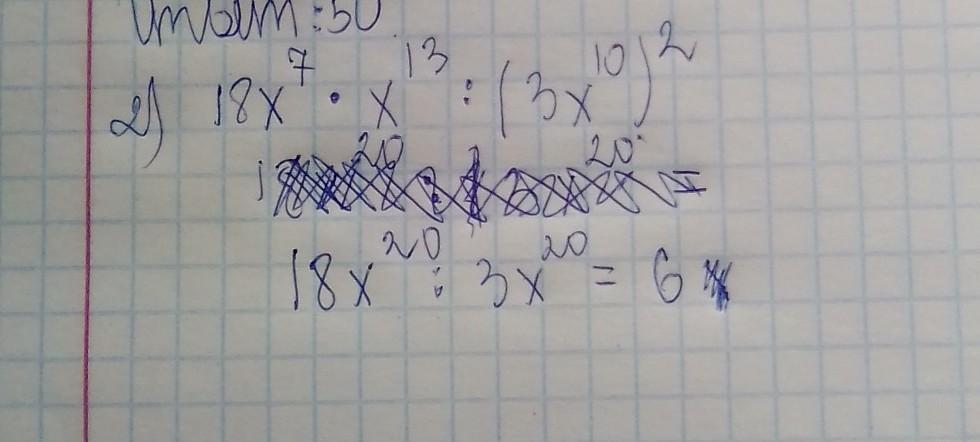 :50
2) 18x⁷ · x¹³ : (3x¹⁰)²
18x²⁰ : 3x²⁰ = 6